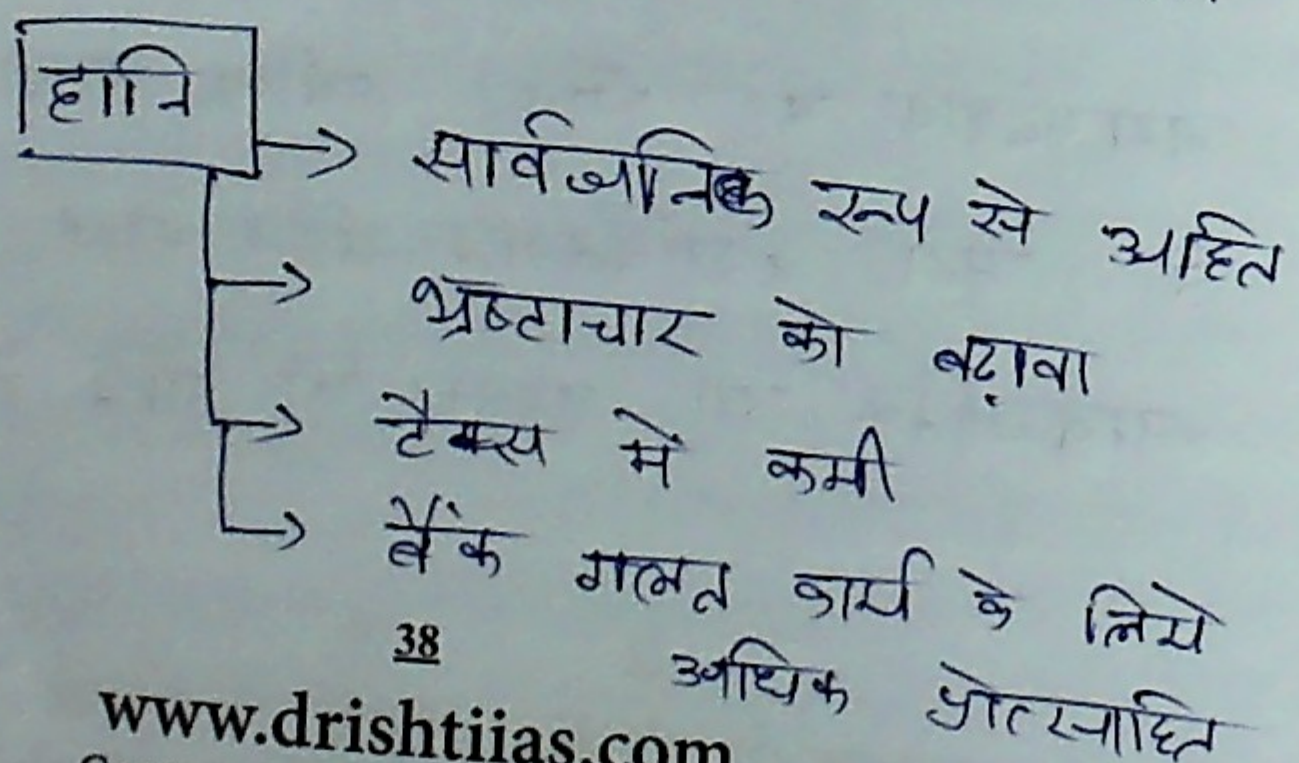 हानि
सार्वजनिक रूप से अहित
भ्रष्टाचार को बढ़ावा
टैक्स में कमी
बैंक गलत कार्य के लिये
अधिक प्रोत्साहित
38
www.drishtiias.com